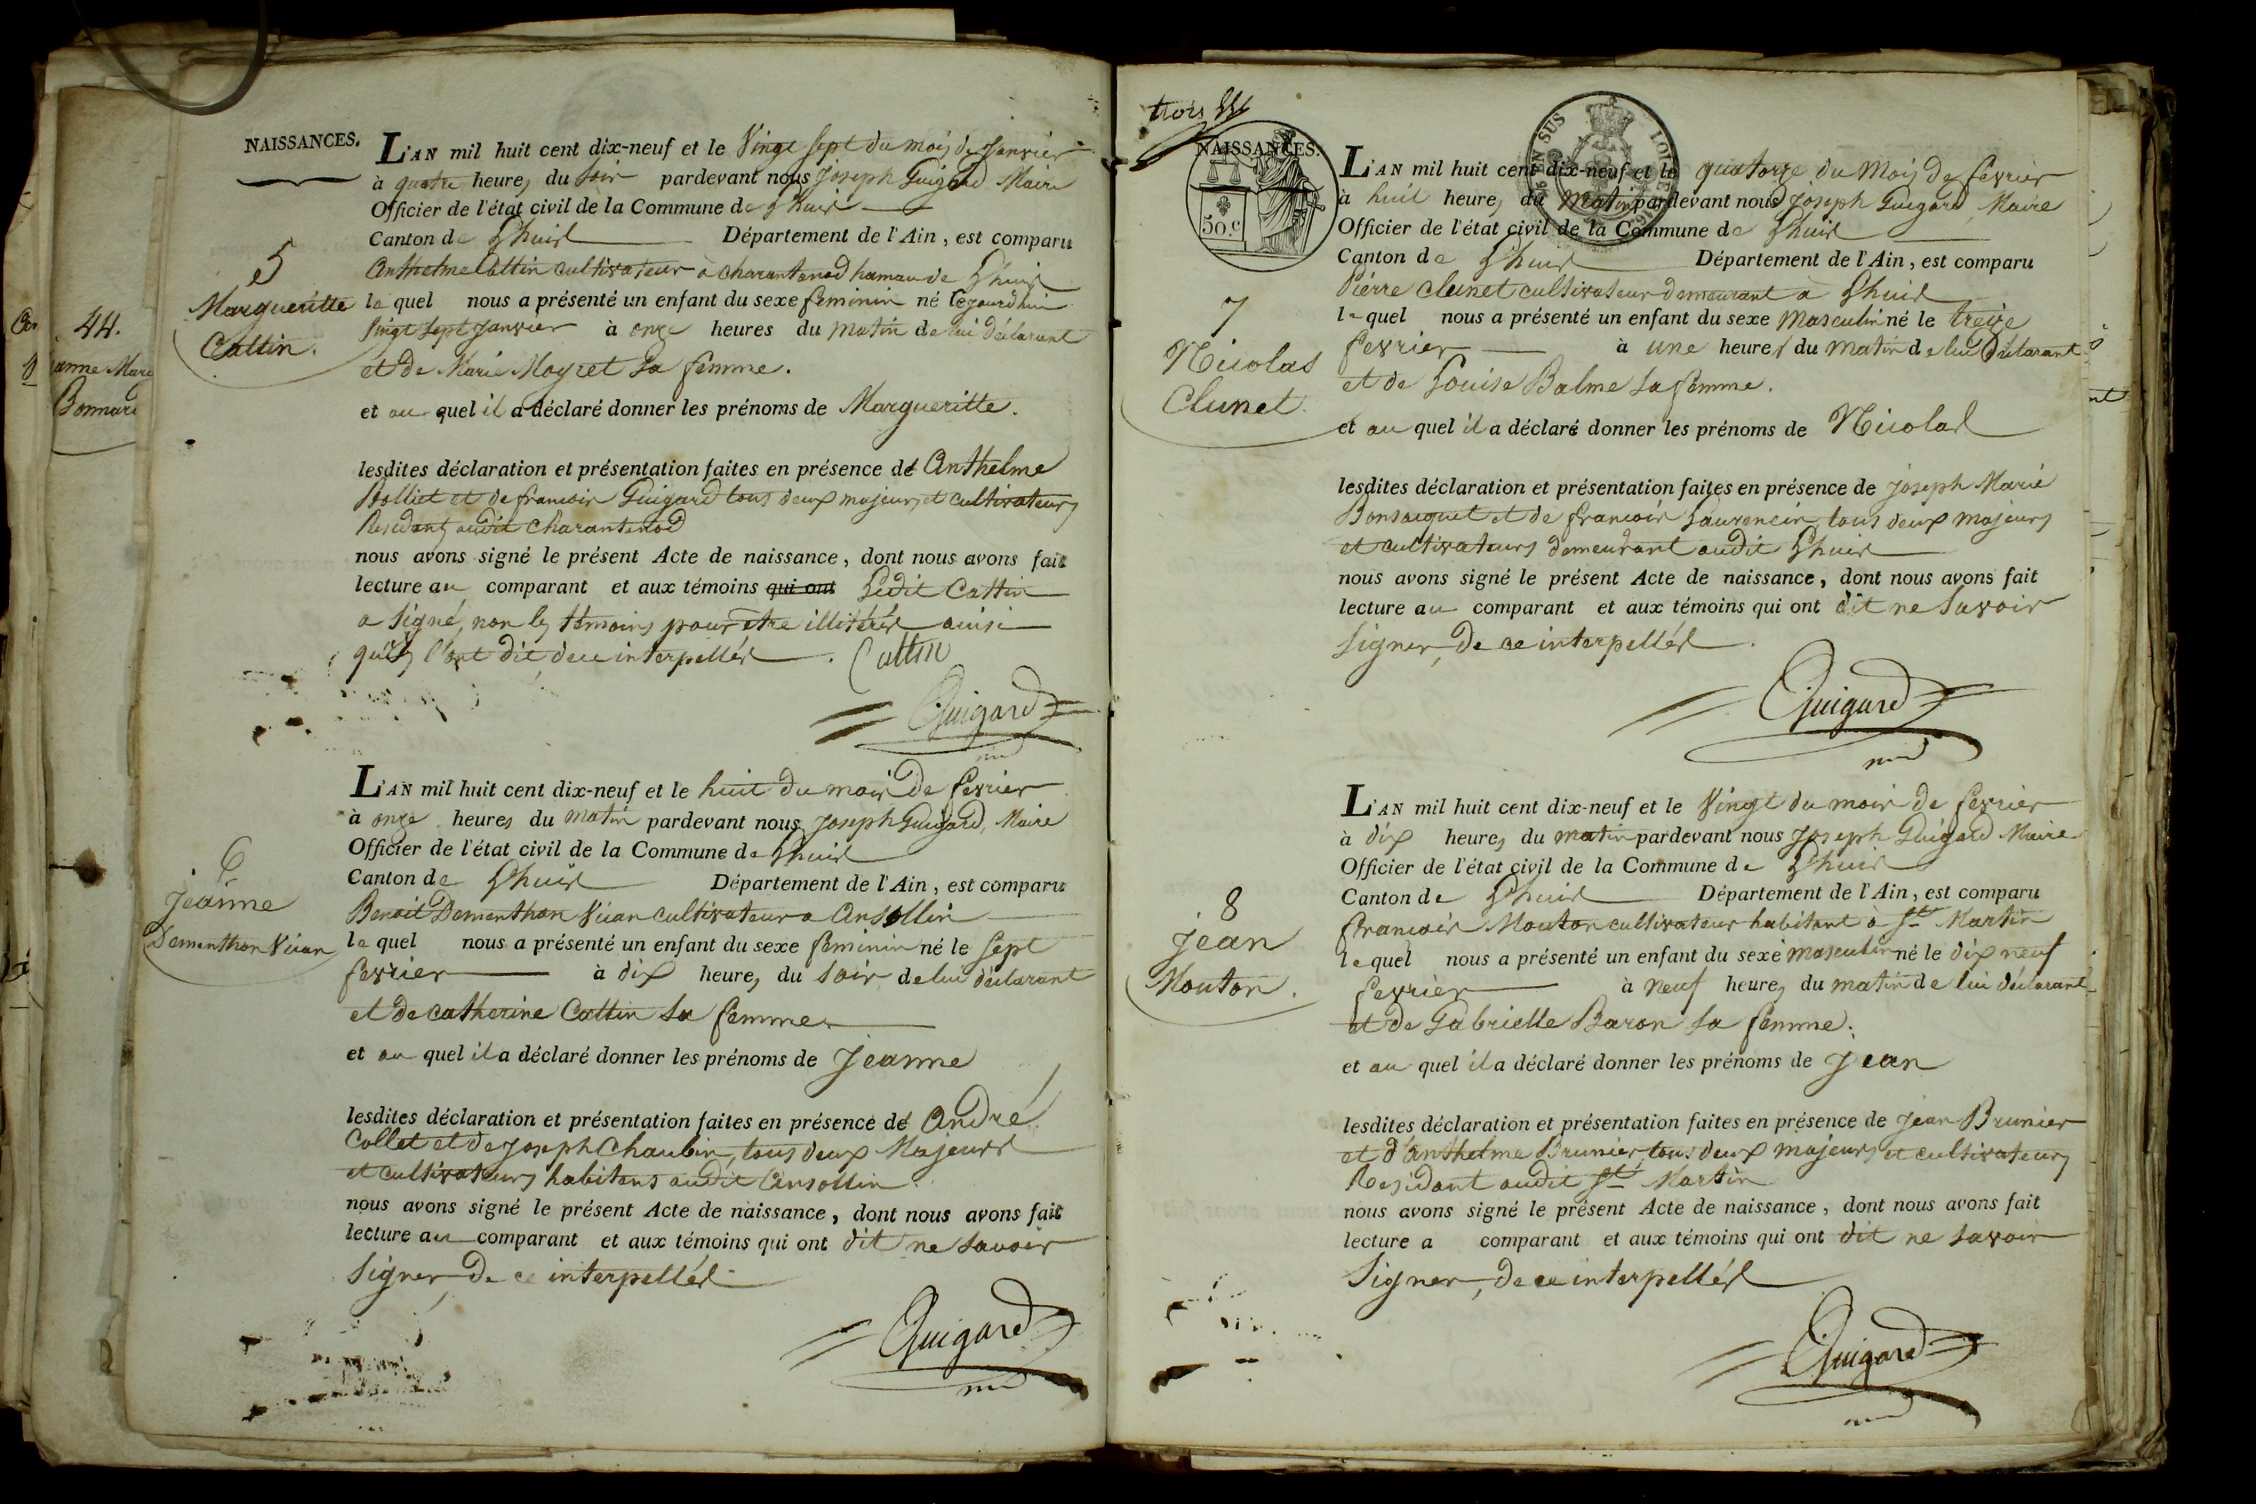 44.
Bonnard
NAISSANCES.
5
Margueritte
Cattin.
L'AN mil huit cent dix-neuf et le Vingt sept du mois de Janvier
à quatre heures du soir pardevant nous Joseph Guigard Maire
Officier de l'état civil de la Commune de Lhuis
Canton de Lhuis Département de l'Ain, est comparu
Anthelme Cattin cultivateur à charantenod hameau de Lhuis
lequel nous a présenté un enfant du sexe feminin né cejourdhui
vingt sept Janvier à onze heures du matin de lui déclarant
et de Marie Moyret sa femme.
et au quel il a déclaré donner les prénoms de Margueritte.
lesdites déclaration et présentation faites en présence de Anthelme
Bolliet et de francois Guigard tous deux majeurs et cultivateurs
Residants audit charantenod
nous avons signé le présent Acte de naissance, dont nous avons fait
lecture au comparant et aux témoins qui ont Ledit Cattin
a Signé, non les témoins pour etre illitérés ainsi
qu'ils l'ont dit de ce interpellés. Cattin
Guigard
6
Jeanne
Dementhon Vivan
L'AN mil huit cent dix-neuf et le huit du mois De fevrier
à onze heures du matin pardevant nous Joseph Guigard, Maire
Officier de l'état civil de la Commune de Lhuis
Canton de Lhuis Département de l'Ain, est comparu
Benoit Dementhon Vivan cultivateur a Ansollin
lequel nous a présenté un enfant du sexe feminin né le sept
fevrier à dix heures du soir de lui déclarant
et de catherine Cattin sa femme
et au quel il a déclaré donner les prénoms de Jeanne
lesdites déclaration et présentation faites en présence de André
Collet et de Joseph Chaubin, tous deux Majeurs
et cultivateurs habitans audit Ansollin.
nous avons signé le présent Acte de naissance, dont nous avons fait
lecture au comparant et aux témoins qui ont dit ne savoir
Signer, De ce interpellés
Guigard
trois
NAISSANCES.
50.c
EN SUS
7
Nicolas
Clunet.
L'AN mil huit cent dix-neuf et le quatorze du Mois de fevrier
à huit heures du Matin pardevant nous Joseph Guigard Maire
Officier de l'état civil de la Commune de Lhuis
Canton de Lhuis Département de l'Ain, est comparu
Pierre Clunet cultivateur demeurant a Lhuis
lequel nous a présenté un enfant du sexe Masculin né le treize
fevrier à une heure du matin de lui Déclarant
et de Louise Balme sa femme.
et au quel il a déclaré donner les prénoms de Nicolas
lesdites déclaration et présentation faites en présence de Joseph Marie
Bonsacquet et de francois Laurencin, tous deux majeurs
et cultivateurs demeurant audit Lhuis
nous avons signé le présent Acte de naissance, dont nous avons fait
lecture au comparant et aux témoins qui ont dit ne Savoir
Signer, De ce interpellés.
Guigard
8
Jean
Mouton.
L'AN mil huit cent dix-neuf et le Vingt du mois de fevrier
à dix heures du matin pardevant nous Joseph Guigard Maire
Officier de l'état civil de la Commune de Lhuis
Canton de Lhuis Département de l'Ain, est comparu
francois Mouton cultivateur habitant a St Martin
lequel nous a présenté un enfant du sexe masculin né le dix neuf
fevrier à neuf heures du matin de lui déclarant
et de Gabrielle Baron sa femme.
et au quel il a déclaré donner les prénoms de Jean
lesdites déclaration et présentation faites en présence de Jean Brunier
et d'Anthelme Brunier, tous deux majeurs et cultivateurs
Residant audit St Martin
nous avons signé le présent Acte de naissance, dont nous avons fait
lecture a comparant et aux témoins qui ont dit ne savoir
Signer, de ce interpellés
Guigard